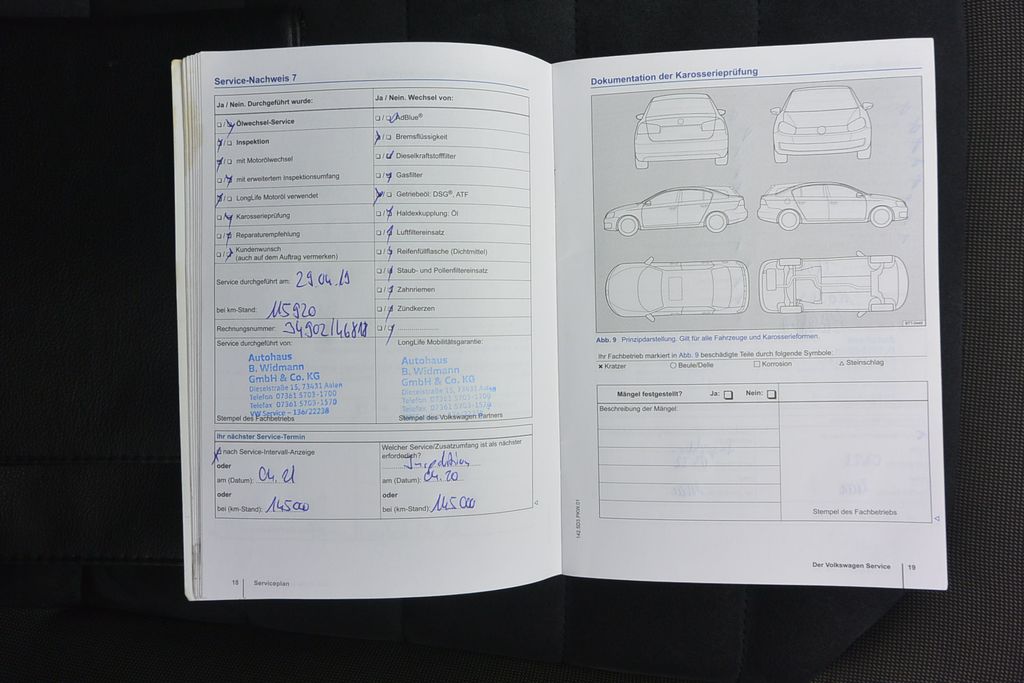 Service-Nachweis 7
Ja / Nein. Durchgeführt wurde:
Ölwechsel-Service
Inspektion
mit Motorölwechsel
mit erweitertem Inspektionsumfang
LongLife Motoröl verwendet
Karosserieprüfung
Reparaturempfehlung
Kundenwunsch
(auch auf dem Auftrag vermerken)
Service durchgeführt am: 29.04.19
bei km-Stand: 115920
Rechnungsnummer:
Service durchgeführt von:
Autohaus
B. Widmann
GmbH & Co. KG
Dieselstraße 15, 73431 Aalen
Telefon 07361 5703-1700
Telefax 07361 5703-1570
VW Service - 136/22238
Stempel des Fachbetriebs
Ja / Nein. Wechsel von:
AdBlue®
Bremsflüssigkeit
Dieselkraftstofffilter
Gasfilter
Getriebeöl: DSG®, ATF
Haldexkupplung: Öl
Luftfiltereinsatz
Reifenfüllflasche (Dichtmittel)
Staub- und Pollenfiltereinsatz
Zahnriemen
Zündkerzen
LongLife Mobilitätsgarantie:
Autohaus
B. Widmann
GmbH & Co. KG
Dieselstraße 15, 73431 Aalen
Telefon 07361 5703-1700
Telefax 07361 5703-1570
VW Service - 136/22238
Stempel des Volkswagen Partners
Ihr nächster Service-Termin
nach Service-Intervall-Anzeige
oder
am (Datum): 04.21
oder
bei (km-Stand): 145000
Welcher Service/Zusatzumfang ist als nächster
erforderlich?
Inspektion
am (Datum): 04.20
oder
bei (km-Stand): 145000
18 Serviceplan
Dokumentation der Karosserieprüfung
Abb. 9 Prinzipdarstellung. Gilt für alle Fahrzeuge und Karosserieformen.
Ihr Fachbetrieb markiert in Abb. 9 beschädigte Teile durch folgende Symbole:
Kratzer
Beule/Delle
Korrosion
Steinschlag
Mängel festgestellt? Ja: Nein:
Beschreibung der Mängel:
Stempel des Fachbetriebs
142.5D3.PKW.01
Der Volkswagen Service 19